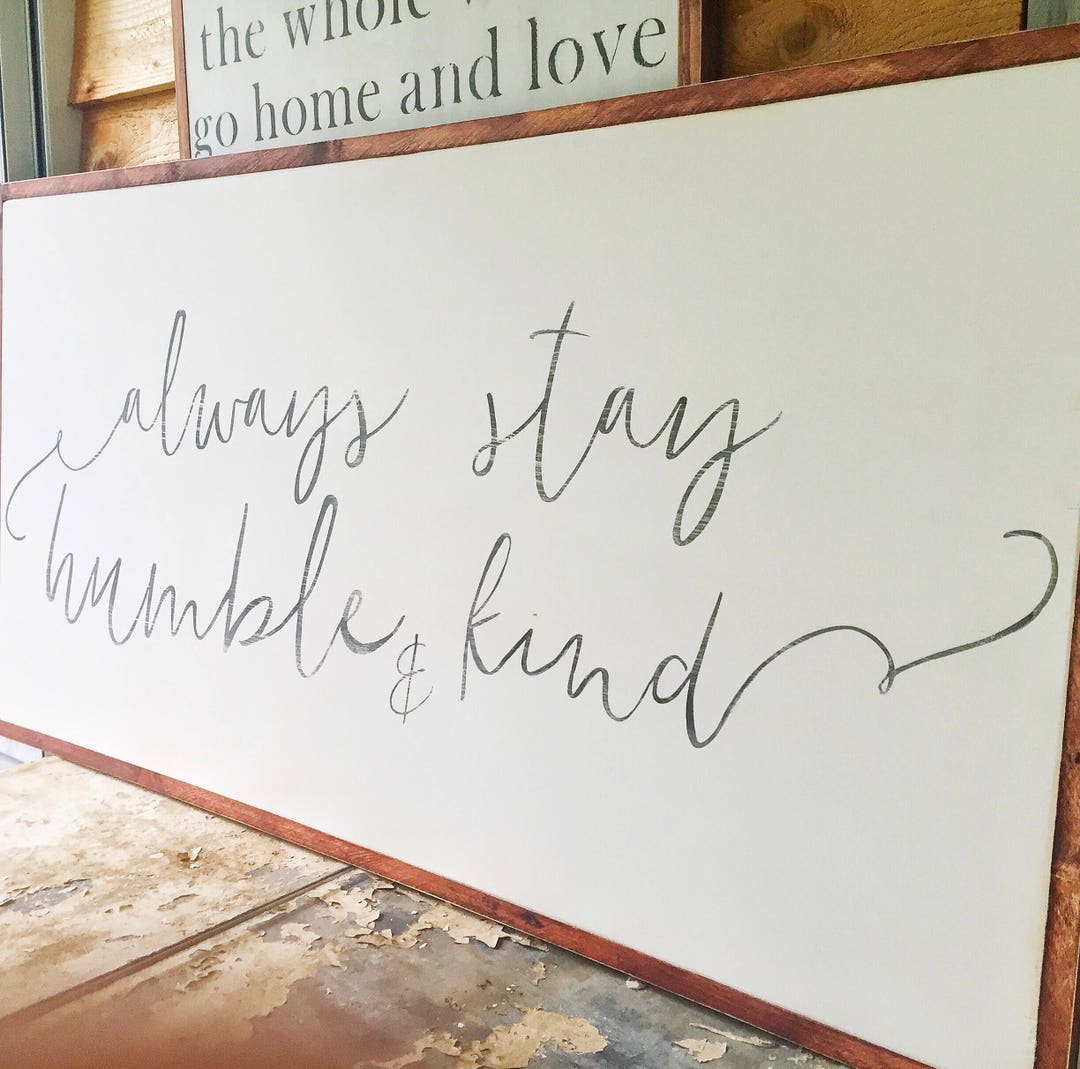 the whole
go home and love
always stay
humble & kind